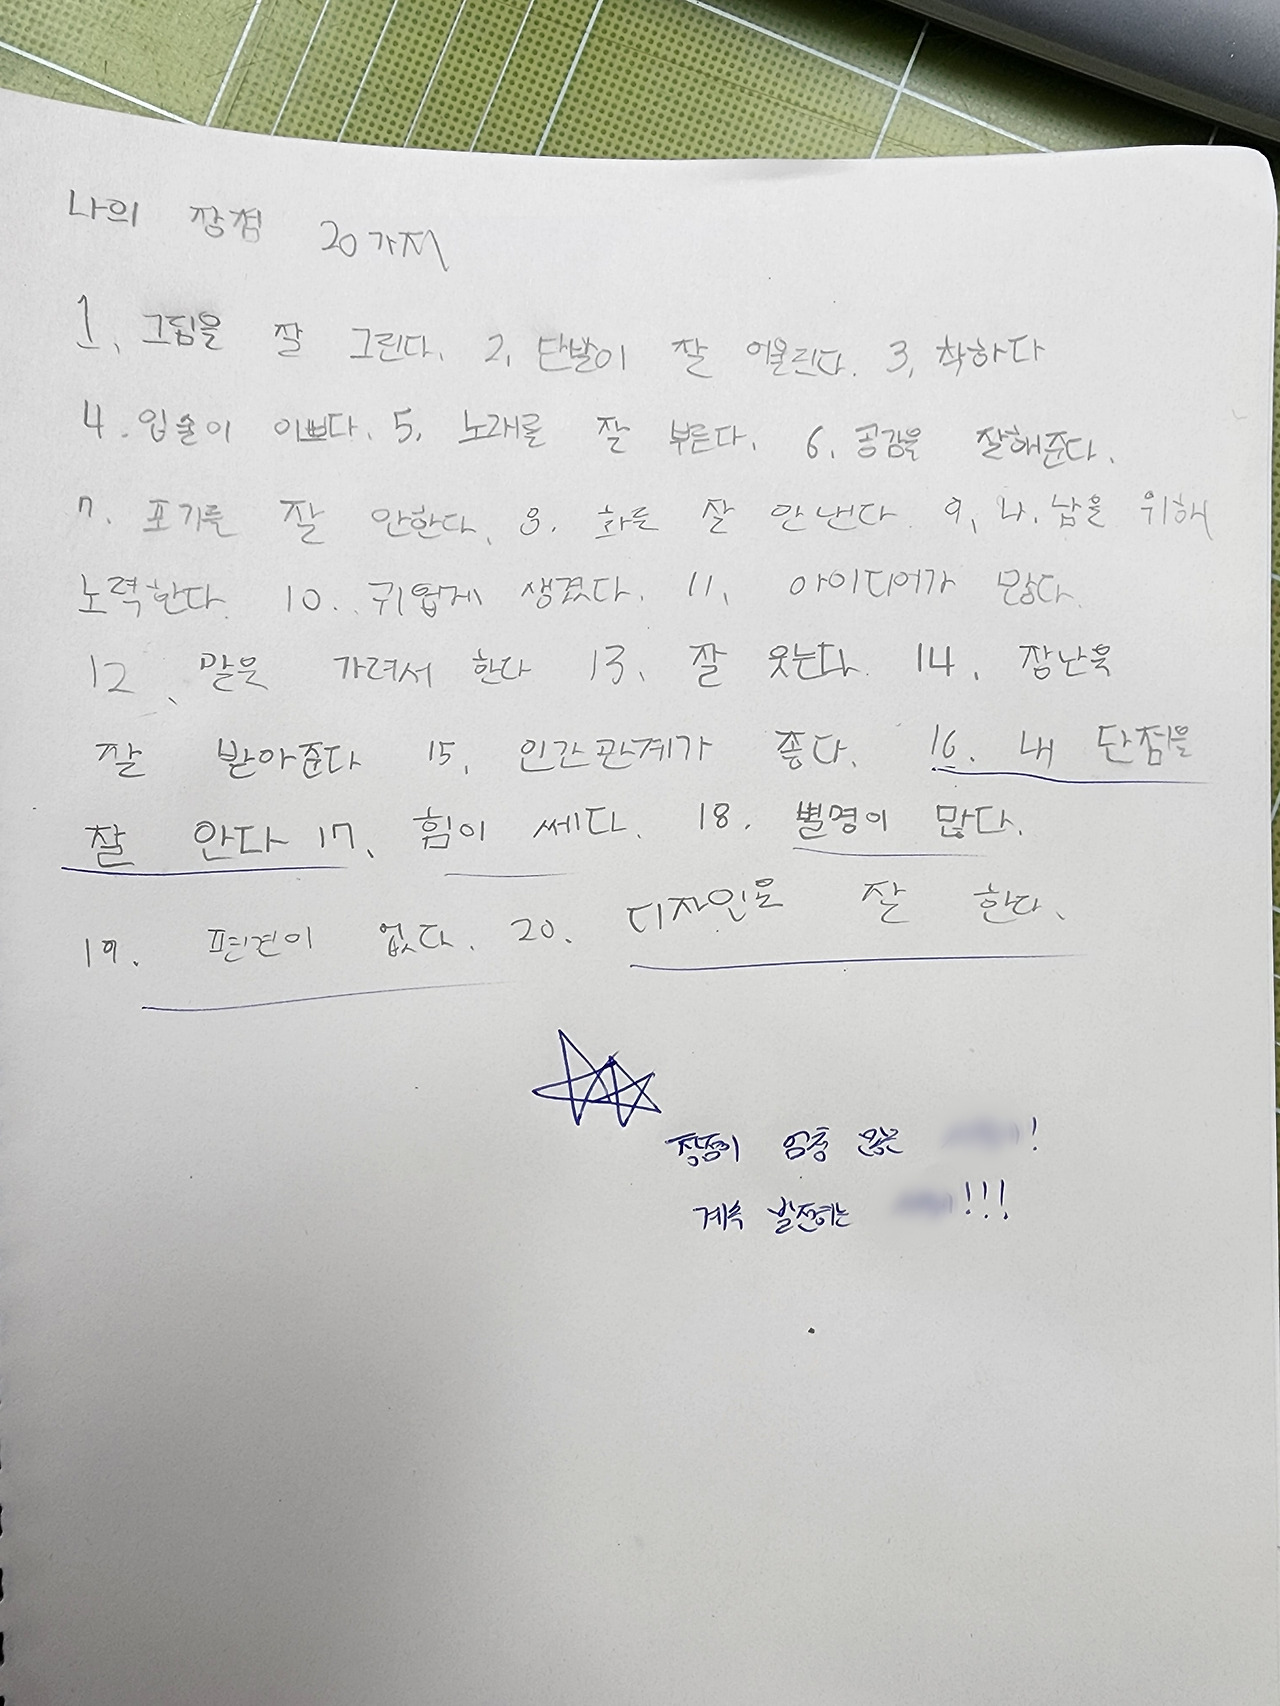 나의 장점 20가지
1. 그림을 잘 그린다. 2. 단발이 잘 어울린다. 3. 착하다
4. 입술이 이쁘다. 5. 노래를 잘 부른다. 6. 공감을 잘해준다.
7. 포기를 잘 안한다. 8. 화를 잘 안낸다 9. 남을 위해
노력한다. 10. 귀엽게 생겼다. 11. 아이디어가 많다.
12. 말을 가려서 한다 13. 잘 웃는다. 14. 장난을
잘 받아준다 15. 인간관계가 좋다. 16. 내 단점을
잘 안다 17. 힘이 쎄다. 18. 별명이 많다.
19. 편견이 없다. 20. 디자인을 잘 한다.
장점이 엄청 많은 !
계속 발전하는 !!!